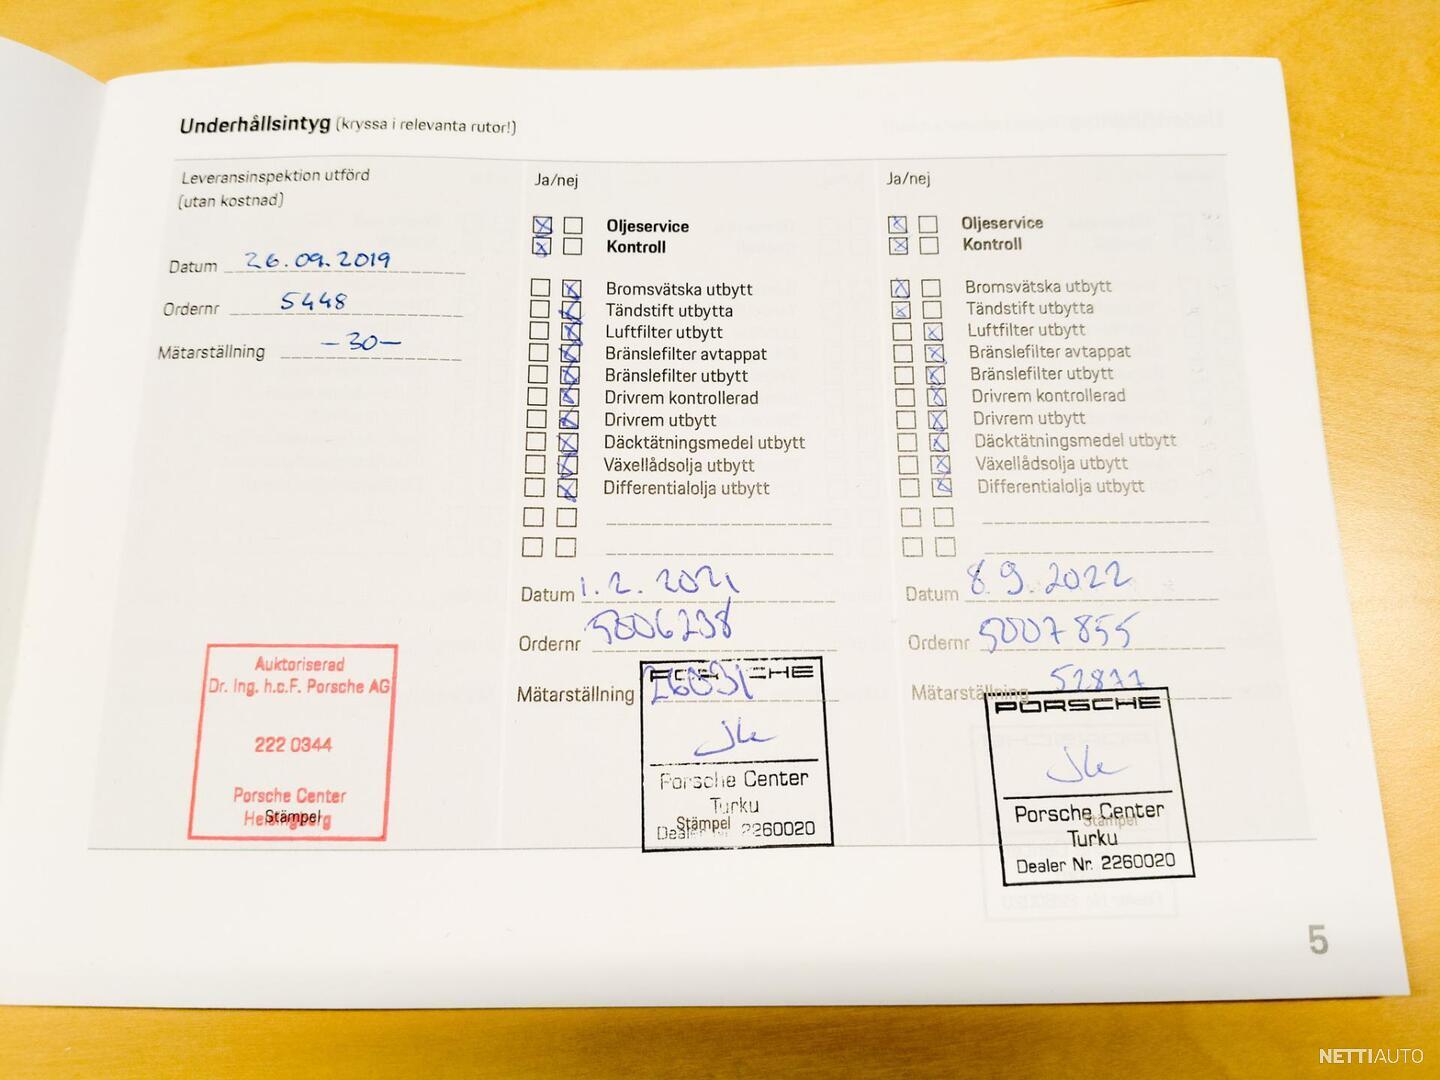 Underhållsintyg (kryssa i relevanta rutor!)
Leveransinspektion utförd
(utan kostnad)
Datum 26.09.2019
Ordernr 5448
Mätarställning -30-
Auktoriserad
Dr. Ing. h.c.F. Porsche AG
222 0344
Porsche Center
Helsingborg
Stämpel
Ja/nej
Oljeservice
Kontroll
Bromsvätska utbytt
Tändstift utbytta
Luftfilter utbytt
Bränslefilter avtappat
Bränslefilter utbytt
Drivrem kontrollerad
Drivrem utbytt
Däcktätningsmedel utbytt
Växellådsolja utbytt
Differentialolja utbytt
Datum 1.2.2021
Ordernr 5006238
Mätarställning
PORSCHE
Porsche Center
Turku
Stämpel
Dealer Nr. 2260020
Ja/nej
Oljeservice
Kontroll
Bromsvätska utbytt
Tändstift utbytta
Luftfilter utbytt
Bränslefilter avtappat
Bränslefilter utbytt
Drivrem kontrollerad
Drivrem utbytt
Däcktätningsmedel utbytt
Växellådsolja utbytt
Differentialolja utbytt
Datum 8.9.2022
Ordernr 5007855
Mätarställning 52877
PORSCHE
Porsche Center
Stämpel
Turku
Dealer Nr. 2260020
5
NETTIAUTO